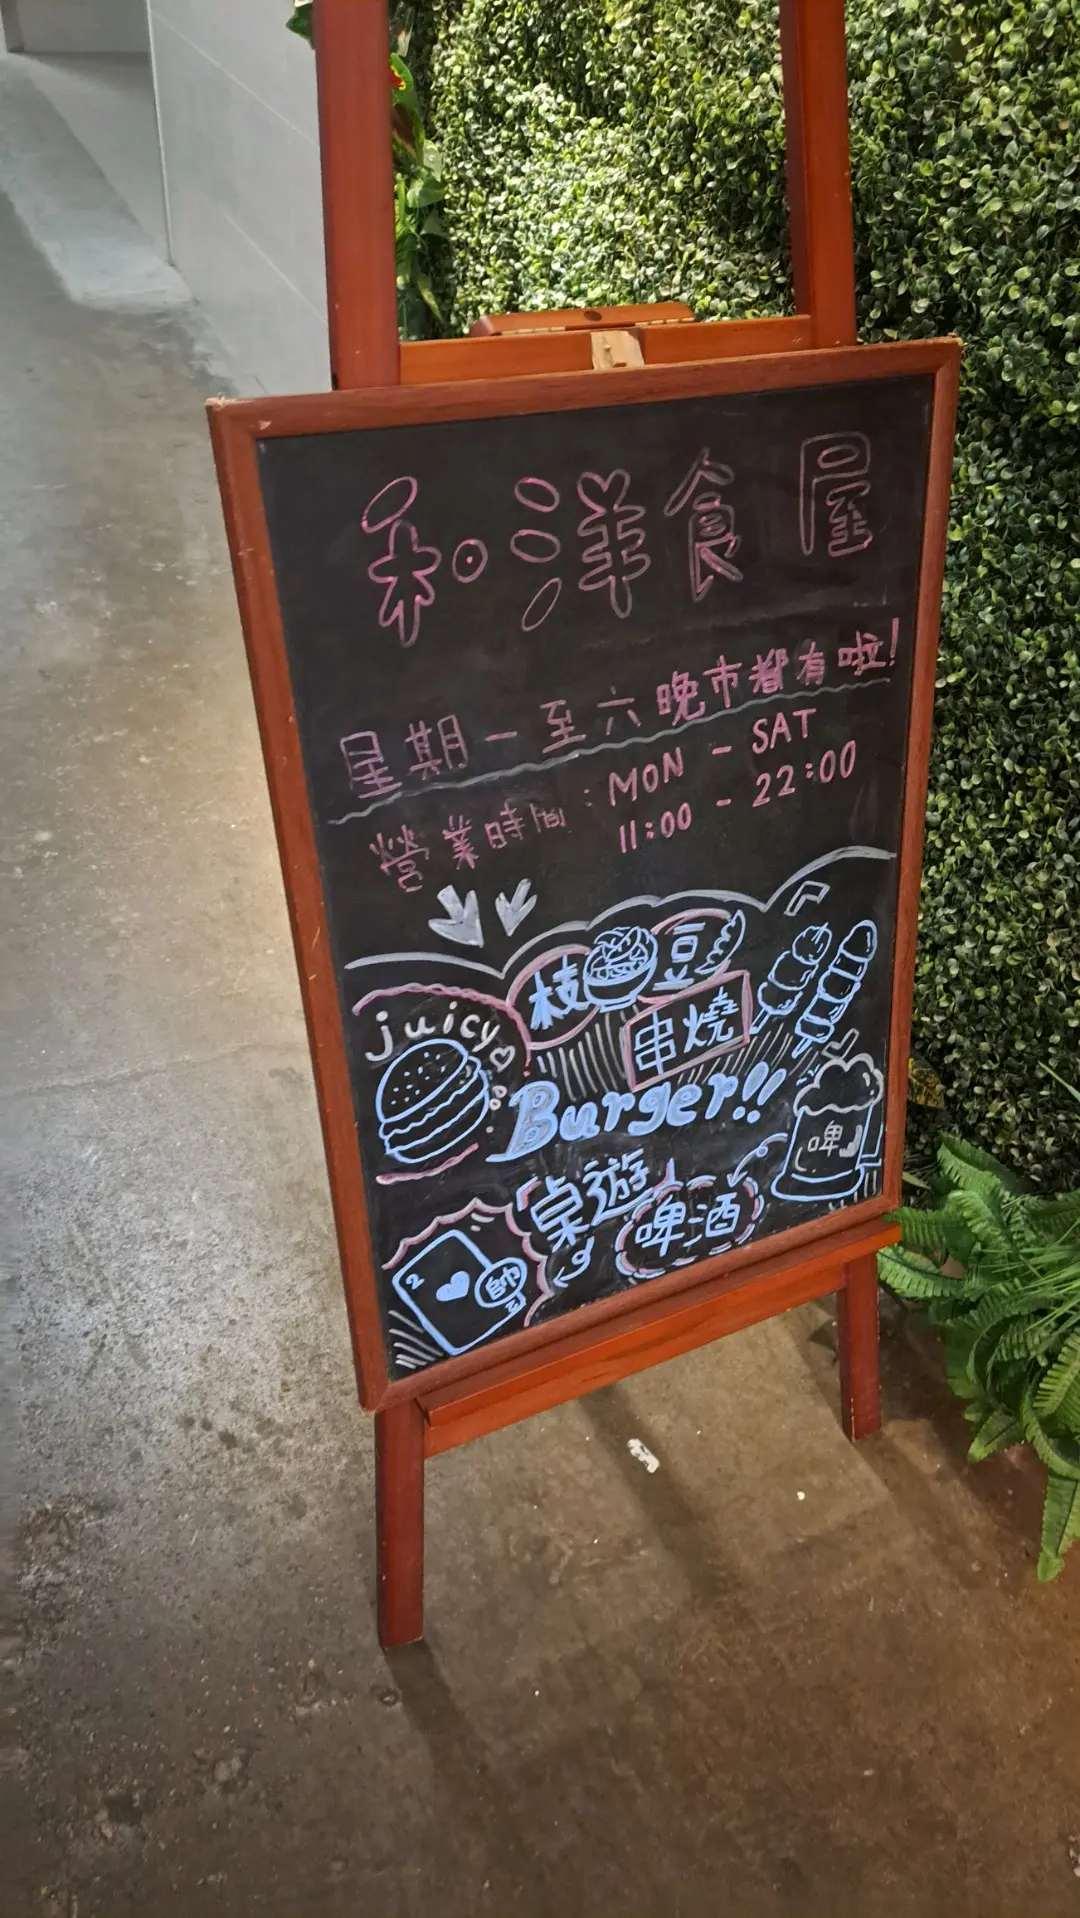 和。洋食屋
星期一至六晚市都有啦!
營業時間:MON - SAT
11:00 - 22:00
juicy
枝豆
串燒
Burger!!
啤
桌遊
啤酒
2
帥
2